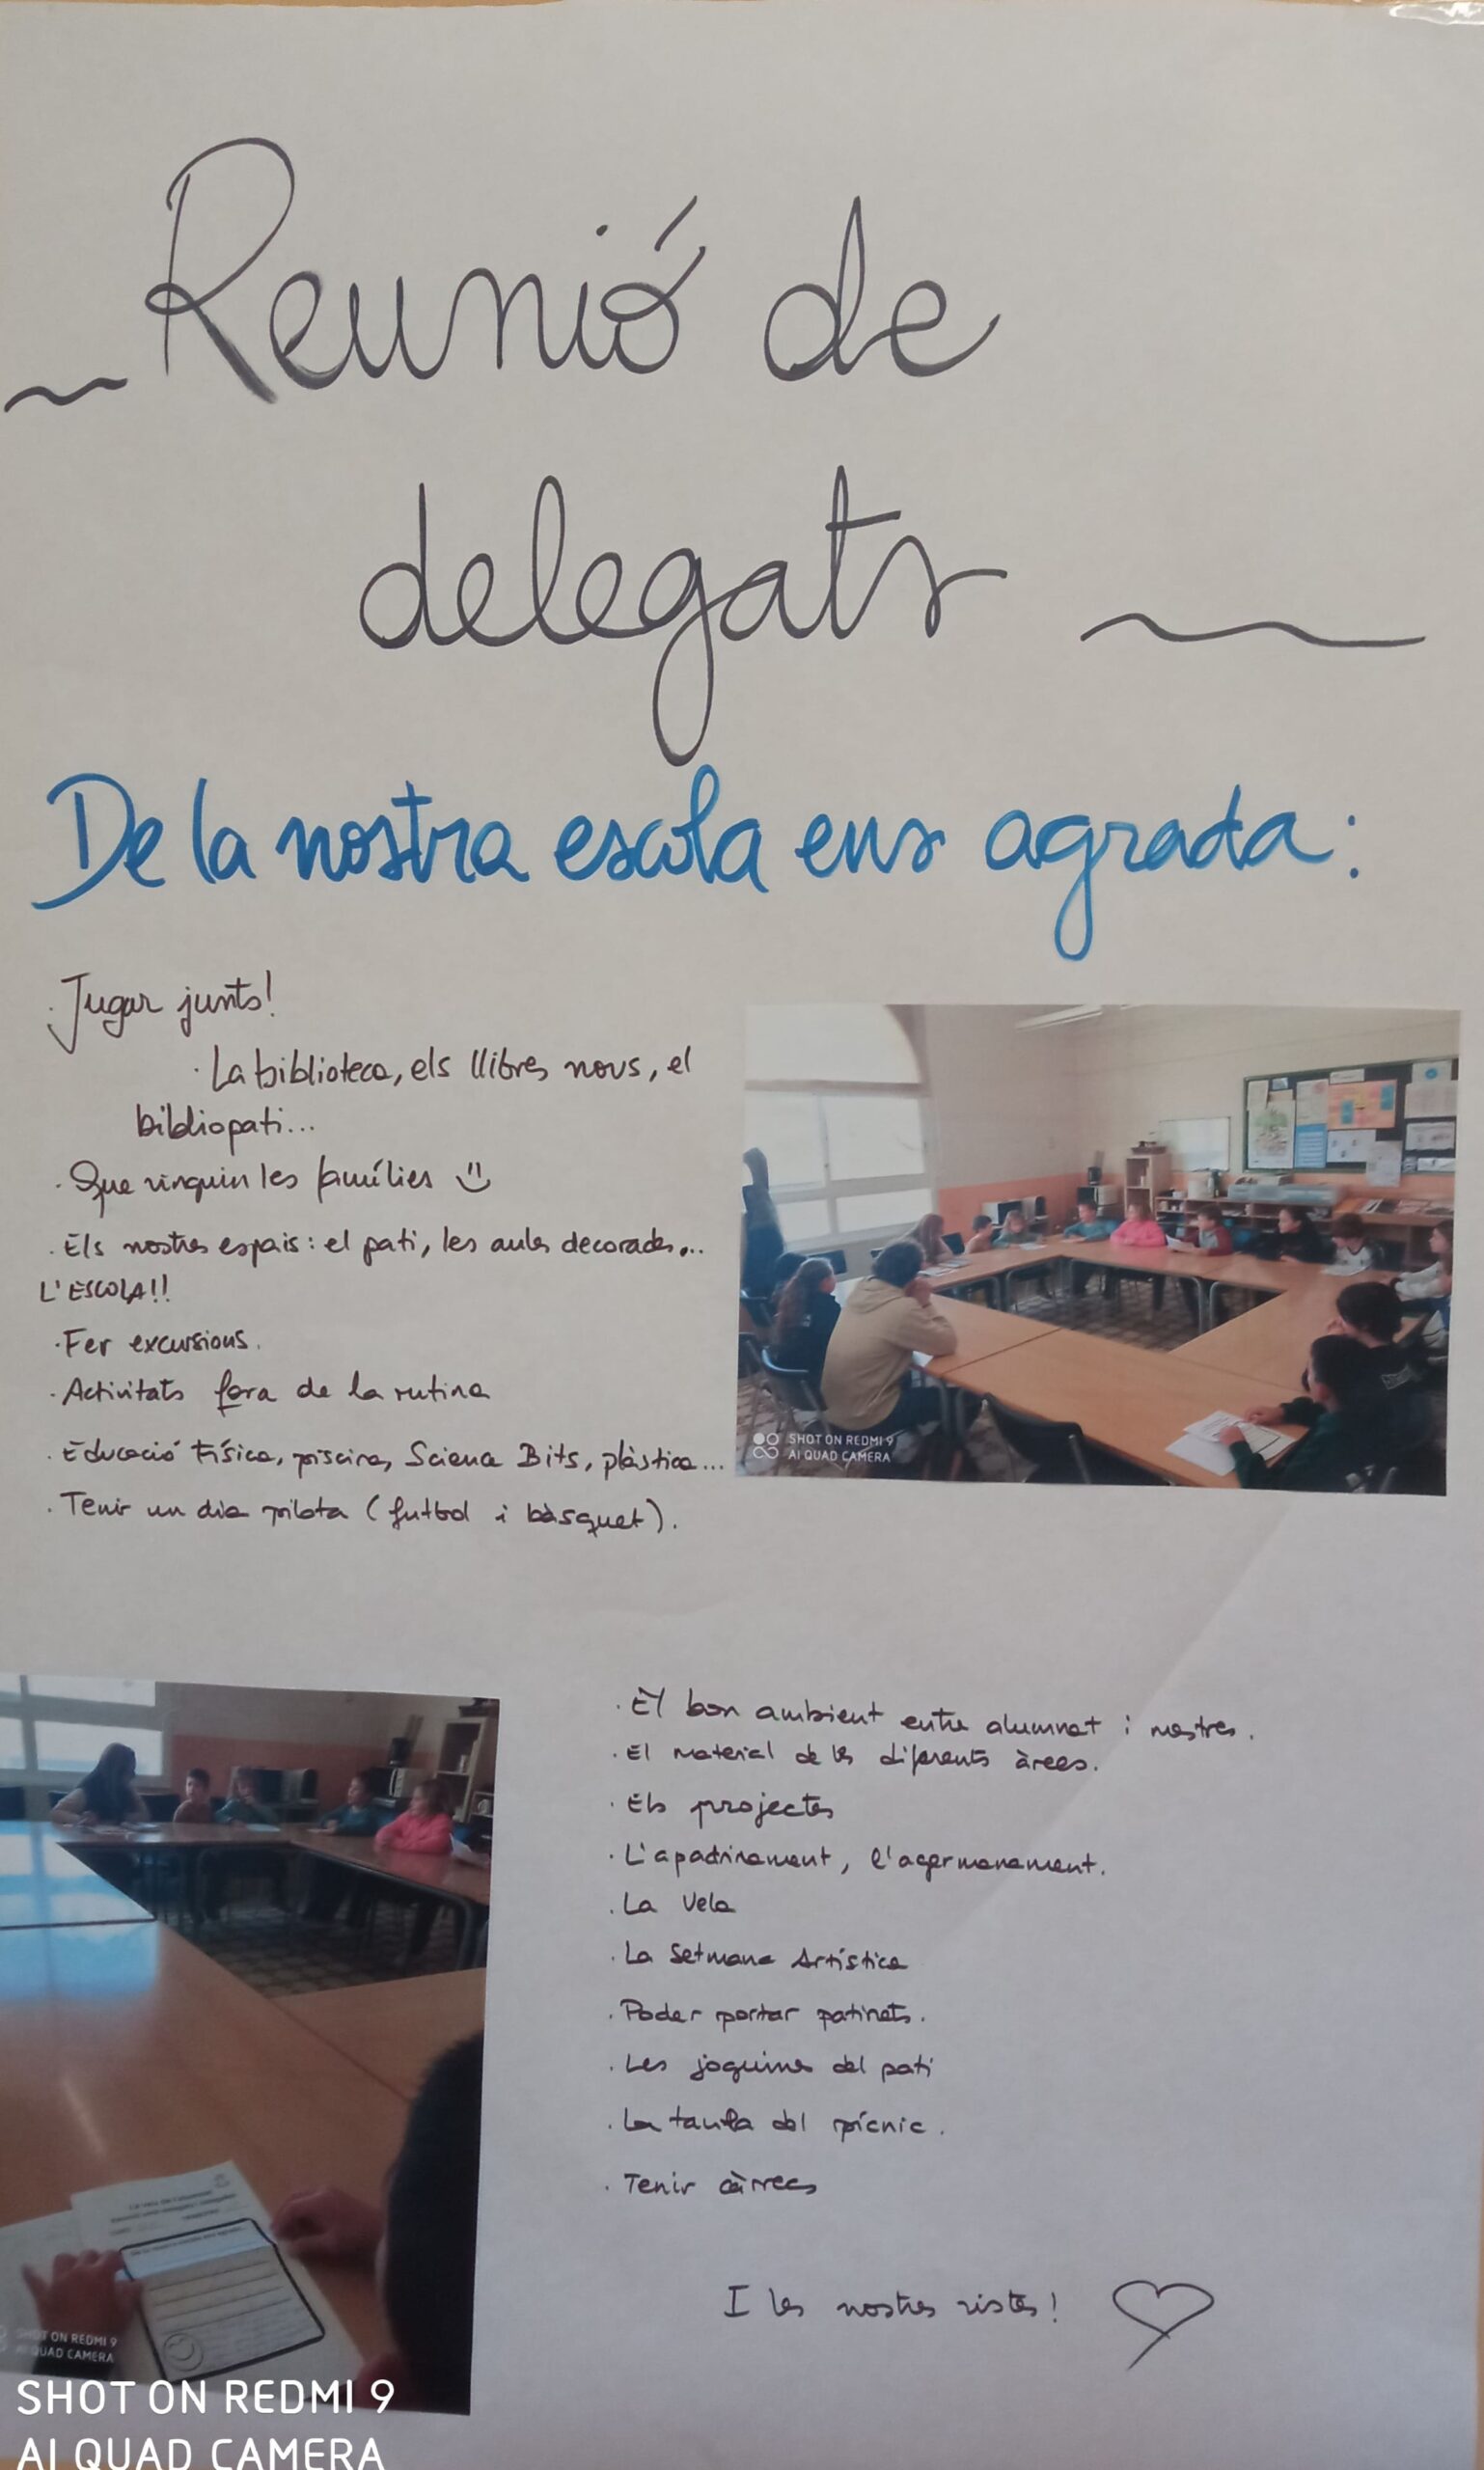 Reunió de
delegats
De la nostra escola ens agrada:
· Jugar junts!
· La biblioteca, els llibres nous, el
bibliopati...
· Que vinguin les famílies
· Els nostres espais: el pati, les aules decorades...
L'ESCOLA!!
· Fer excursions.
· Activitats fora de la rutina
· Educació Física, piscina, Science Bits, plàstica...
· Tenir un dia pilota (futbol i bàsquet).
SHOT ON REDMI 9
AI QUAD CAMERA
· El bon ambient entre alumnat i mestres.
· El material de les diferents àrees.
· Els projectes
· L'apadrinament, l'agermanament.
· La Vela
· La Setmana Artística
· Poder portar patinets.
· Les joguines del pati
· La taula del pícnic.
· Tenir càrrecs
I les nostres vistes!
SHOT ON REDMI 9
AI QUAD CAMERA
SHOT ON REDMI 9
AI QUAD CAMERA